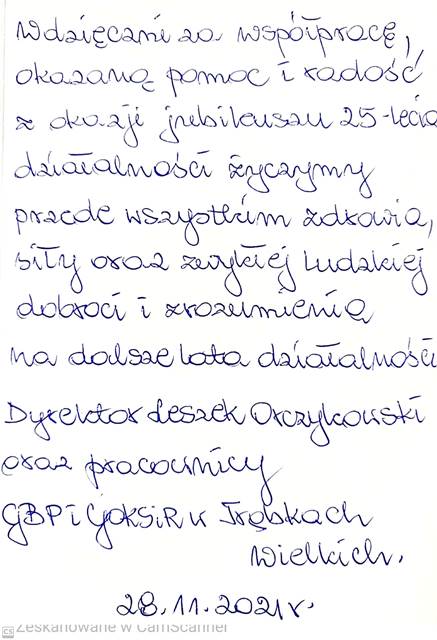 Wdzięczni za współpracę,
okazaną pomoc i radość
z okazji jubileuszu 25-lecia
działalności życzymy
przede wszystkim zdrowia,
siły oraz zwykłej ludzkiej
dobroci i zrozumienią
na dalsze lata działalności
Dyrektor Leszek Orczykowski
oraz pracownicy
GBP i GOKSiR w Trąbkach
Wielkich.
28.11.2021r.
CS Zeskanowane w CamScanner